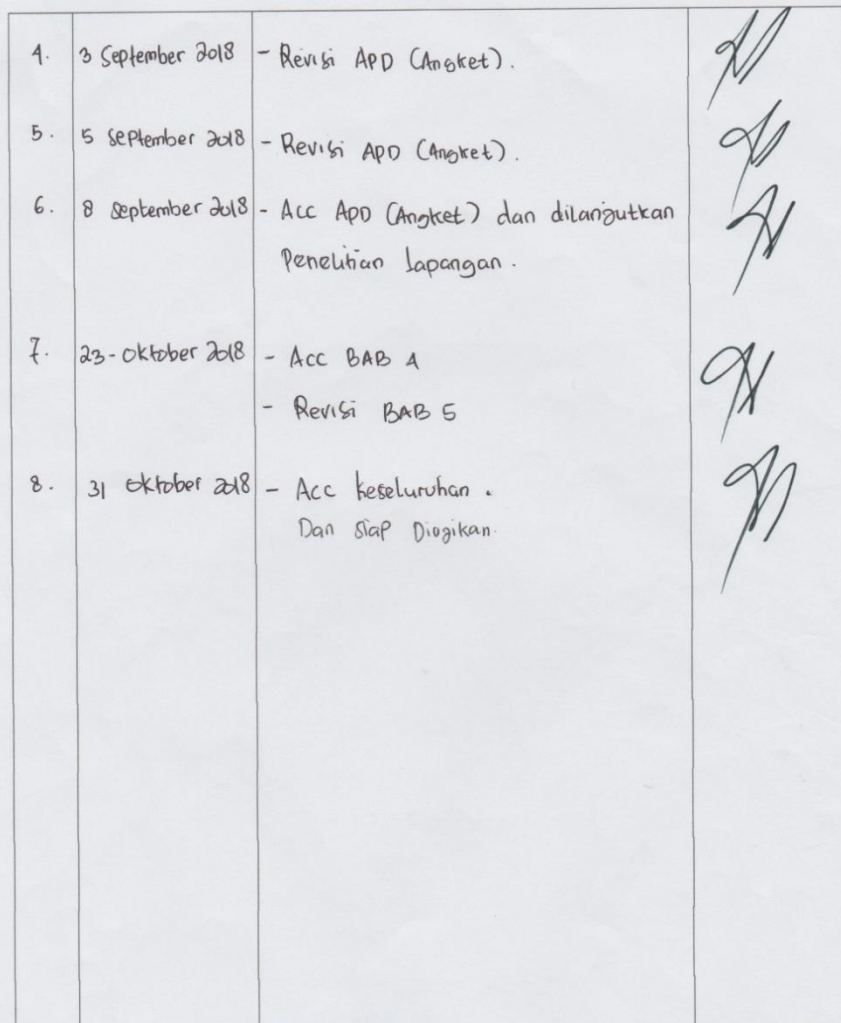 4. 3 September 2018 - Revisi APD (Angket).
5. 5 September 2018 - Revisi APD (Angket).
6. 8 September 2018 - Acc APD (Angket) dan dilanjutkan
Penelitian Lapangan.
7. 23-Oktober 2018 - Acc BAB 4
- Revisi BAB 5
8. 31 Oktober 2018 - Acc keseluruhan.
Dan siap Diogikan.